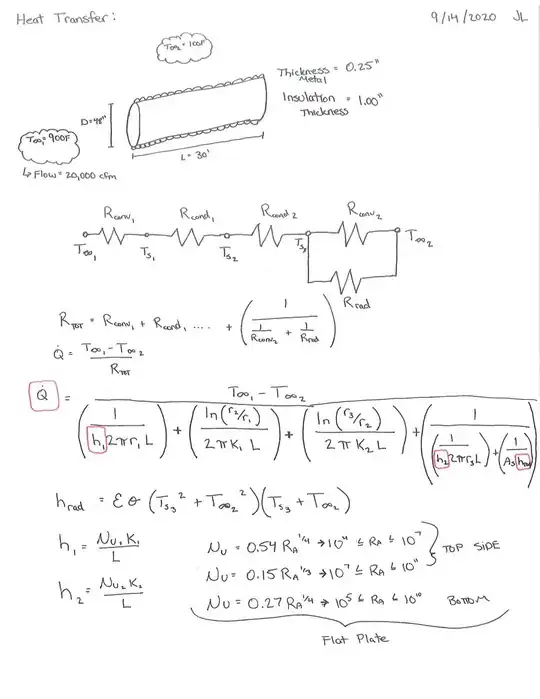 Heat Transfer: 9/14/2020 JL
T∞₂ = 100F
Thickness = 0.25"
Metal
Insulation = 1.00"
Thickness
D=48"
T∞₁ = 900F
L = 30'
↳ Flow = 20,000 cfm
Rconv₁ Rcond₁ Rcond₂ Rconv₂
T∞₁ Ts₁ Ts₂ Ts₃ T∞₂
Rrad
RTOT = Rconv₁ + Rcond₁ .... + (1 / (1/Rconv₂ + 1/Rrad))
Q̇ = (T∞₁ - T∞₂) / RTOT
Q̇ = (T∞₁ - T∞₂) / ((1 / (h₁2πr₁L)) + (ln(r₂/r₁) / (2πK₁L)) + (ln(r₃/r₂) / (2πK₂L)) + (1 / ((1 / (h₂2πr₃L)) + (1 / (A₃hrad)))))
hrad = εσ (Ts₃² + T∞₂²)(Ts₃ + T∞₂)
h₁ = Nu₁K₁ / L
h₂ = Nu₂K₂ / L
Nu = 0.54 RA^1/4 → 10⁴ ≤ RA ≤ 10⁷
TOP SIDE
Nu = 0.15 RA^1/3 → 10⁷ ≤ RA ≤ 10¹¹
Nu = 0.27 RA^1/4 → 10⁵ ≤ RA ≤ 10¹⁰ BOTTOM
Flat Plate